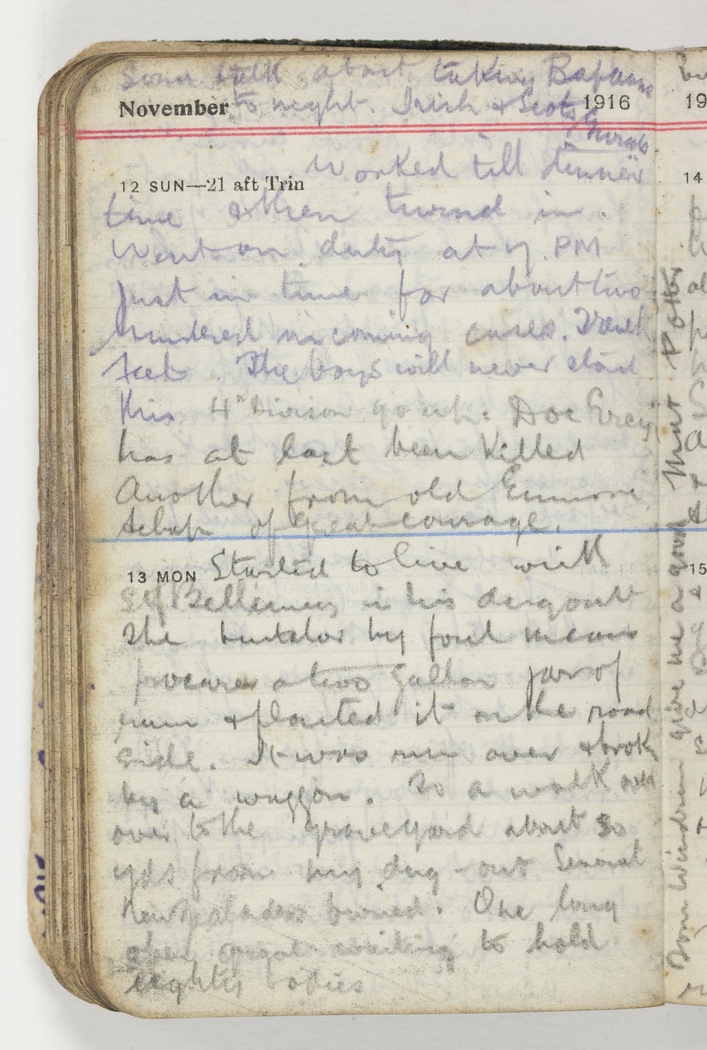 Some talk about taking Bapaume
November to night. Irish & Scots 1916
Guards
Worked till dinner
12 SUN—21 aft Trin
time & then turned in.
Went on duty at 7. PM
just in time for about two
hundred incoming cases. Trench
feet. The boys will never stand
this 4th Division go up. Doc Grey
has at last been killed
Another from old Enmore
& chap of great courage.
13 MON Started to live with
Sgt Bellemey in his dugout
The butcher by foul means
procures a two gallon jar of
rum & planted it on the road
side. It was run over & broke
by a waggon. To a walk over
over to the graveyard about 30
yds from my dug-out Several
New Zealanders buried. One long
open grave waiting to hold
eighty bodies
Tom Windram give me a good
19
14
15